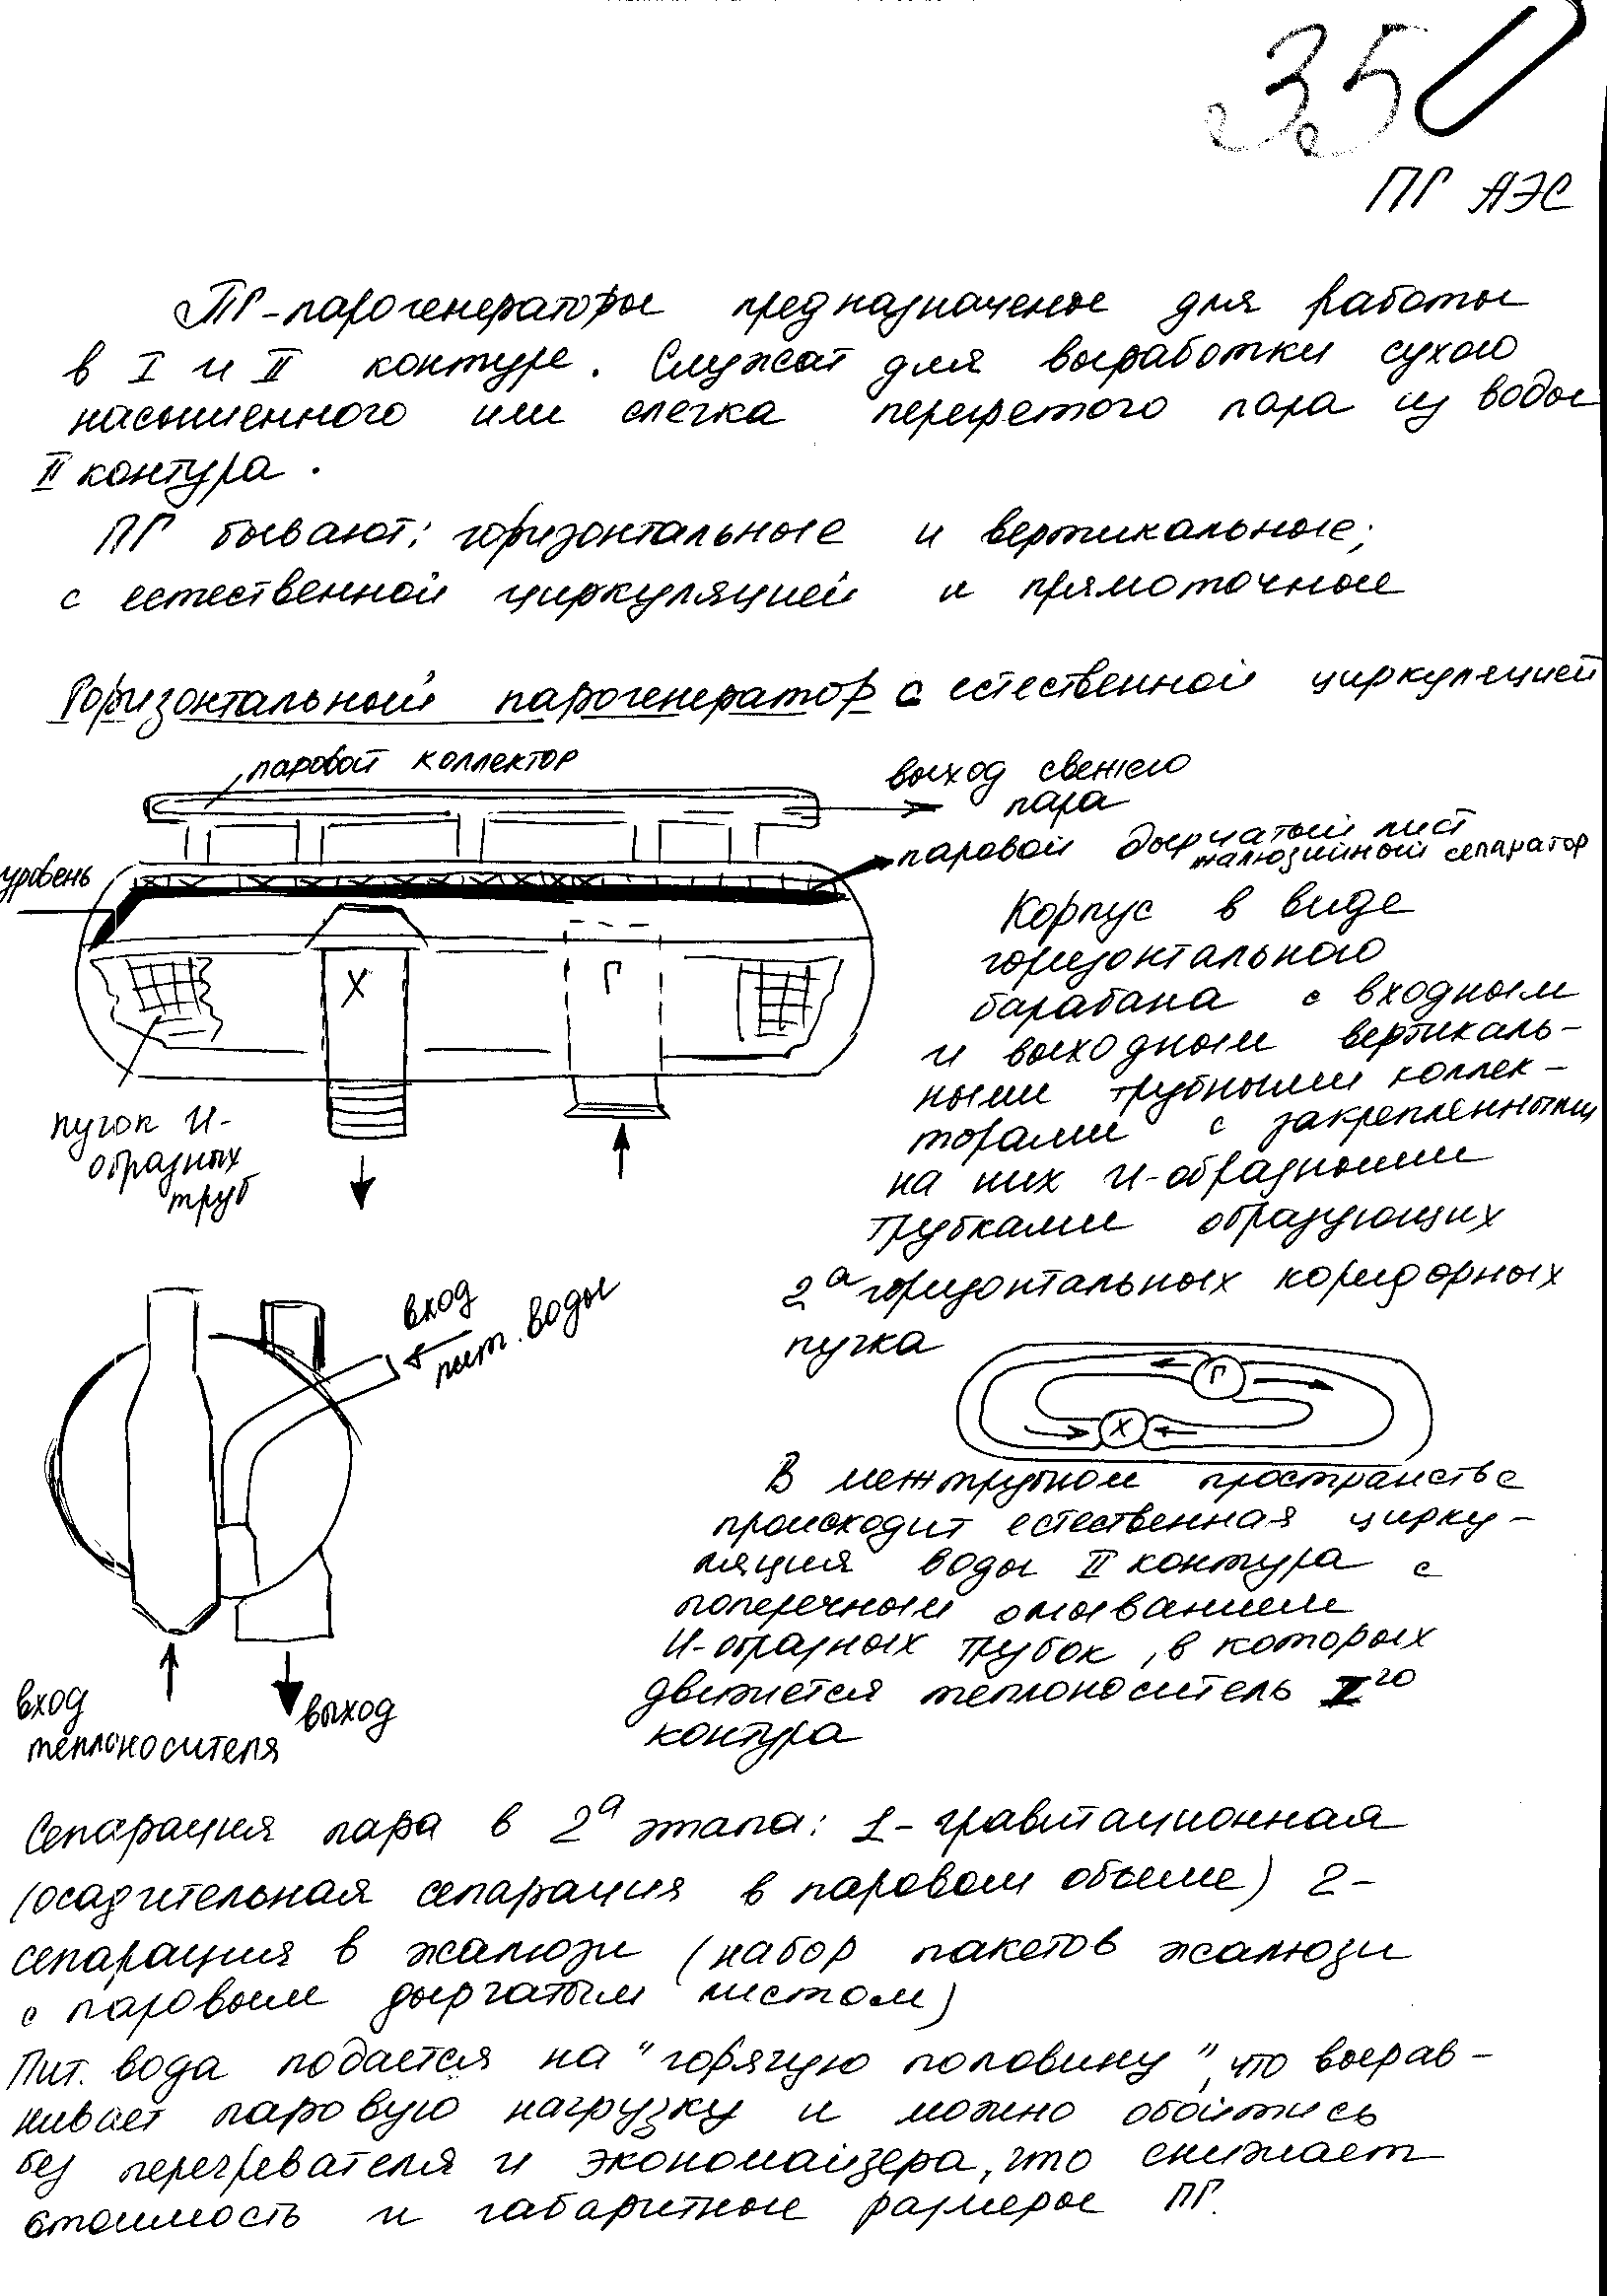 35
ПГ АЭС
ПГ-парогенераторы предназначены для работы
в I и II контуре. Служат для выработки сухого
насыщенного или слегка перегретого пара из воды
II контура.
ПГ бывают: горизонтальные и вертикальные;
с естественной циркуляцией и прямоточные
Горизонтальный парогенератор с естественной циркуляцией
паровой коллектор
выход свежего
пара
паровой дырчатый лист
жалюзийный сепаратор
уровень
Х
Г
пучок U-
образных
труб
Корпус в виде
горизонтального
барабана с входным
и выходным вертикаль-
ными трубными коллек-
торами с закрепленными
на них U-образными
трубками образующих
2а горизонтальных коридорных
пучка
вход
пит. воды
Г
Х
В межтрубном пространстве
происходит естественная цирку-
ляция воды II контура с
поперечным омыванием
U-образных трубок, в которых
движется теплоноситель Iго
контура
вход
теплоносителя
выход
Сепарация пара в 2а этапа: 1-гравитационная
(осадительная сепарация в паровом объеме) 2-
сепарация в жалюзи (набор пакетов жалюзи
с паровым дырчатым листом)
Пит. вода подается на "горячую половину", что вырав-
нивает паровую нагрузку и можно обойтись
без перегревателя и экономайзера, что снижает
стоимость и габаритные размеры ПГ.